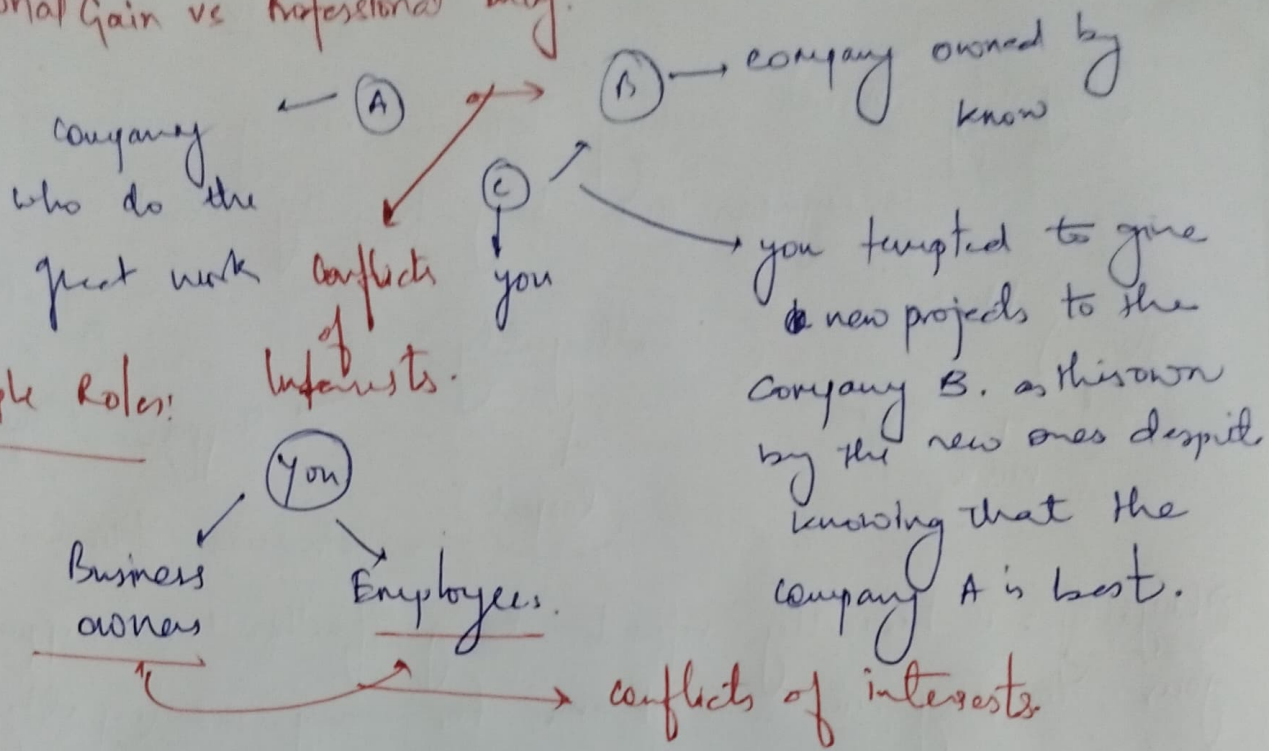 onal Gain vs Professional
A
B
company owned by
know
company
who do the
great work
C
you
conflicts
of
Interests.
you tempted to give
new projects to the
company B. as this own
by the new ones despite
knowing that the
company A is best.
ple Roles:
You
Business
owners
Employees.
conflicts of interests.